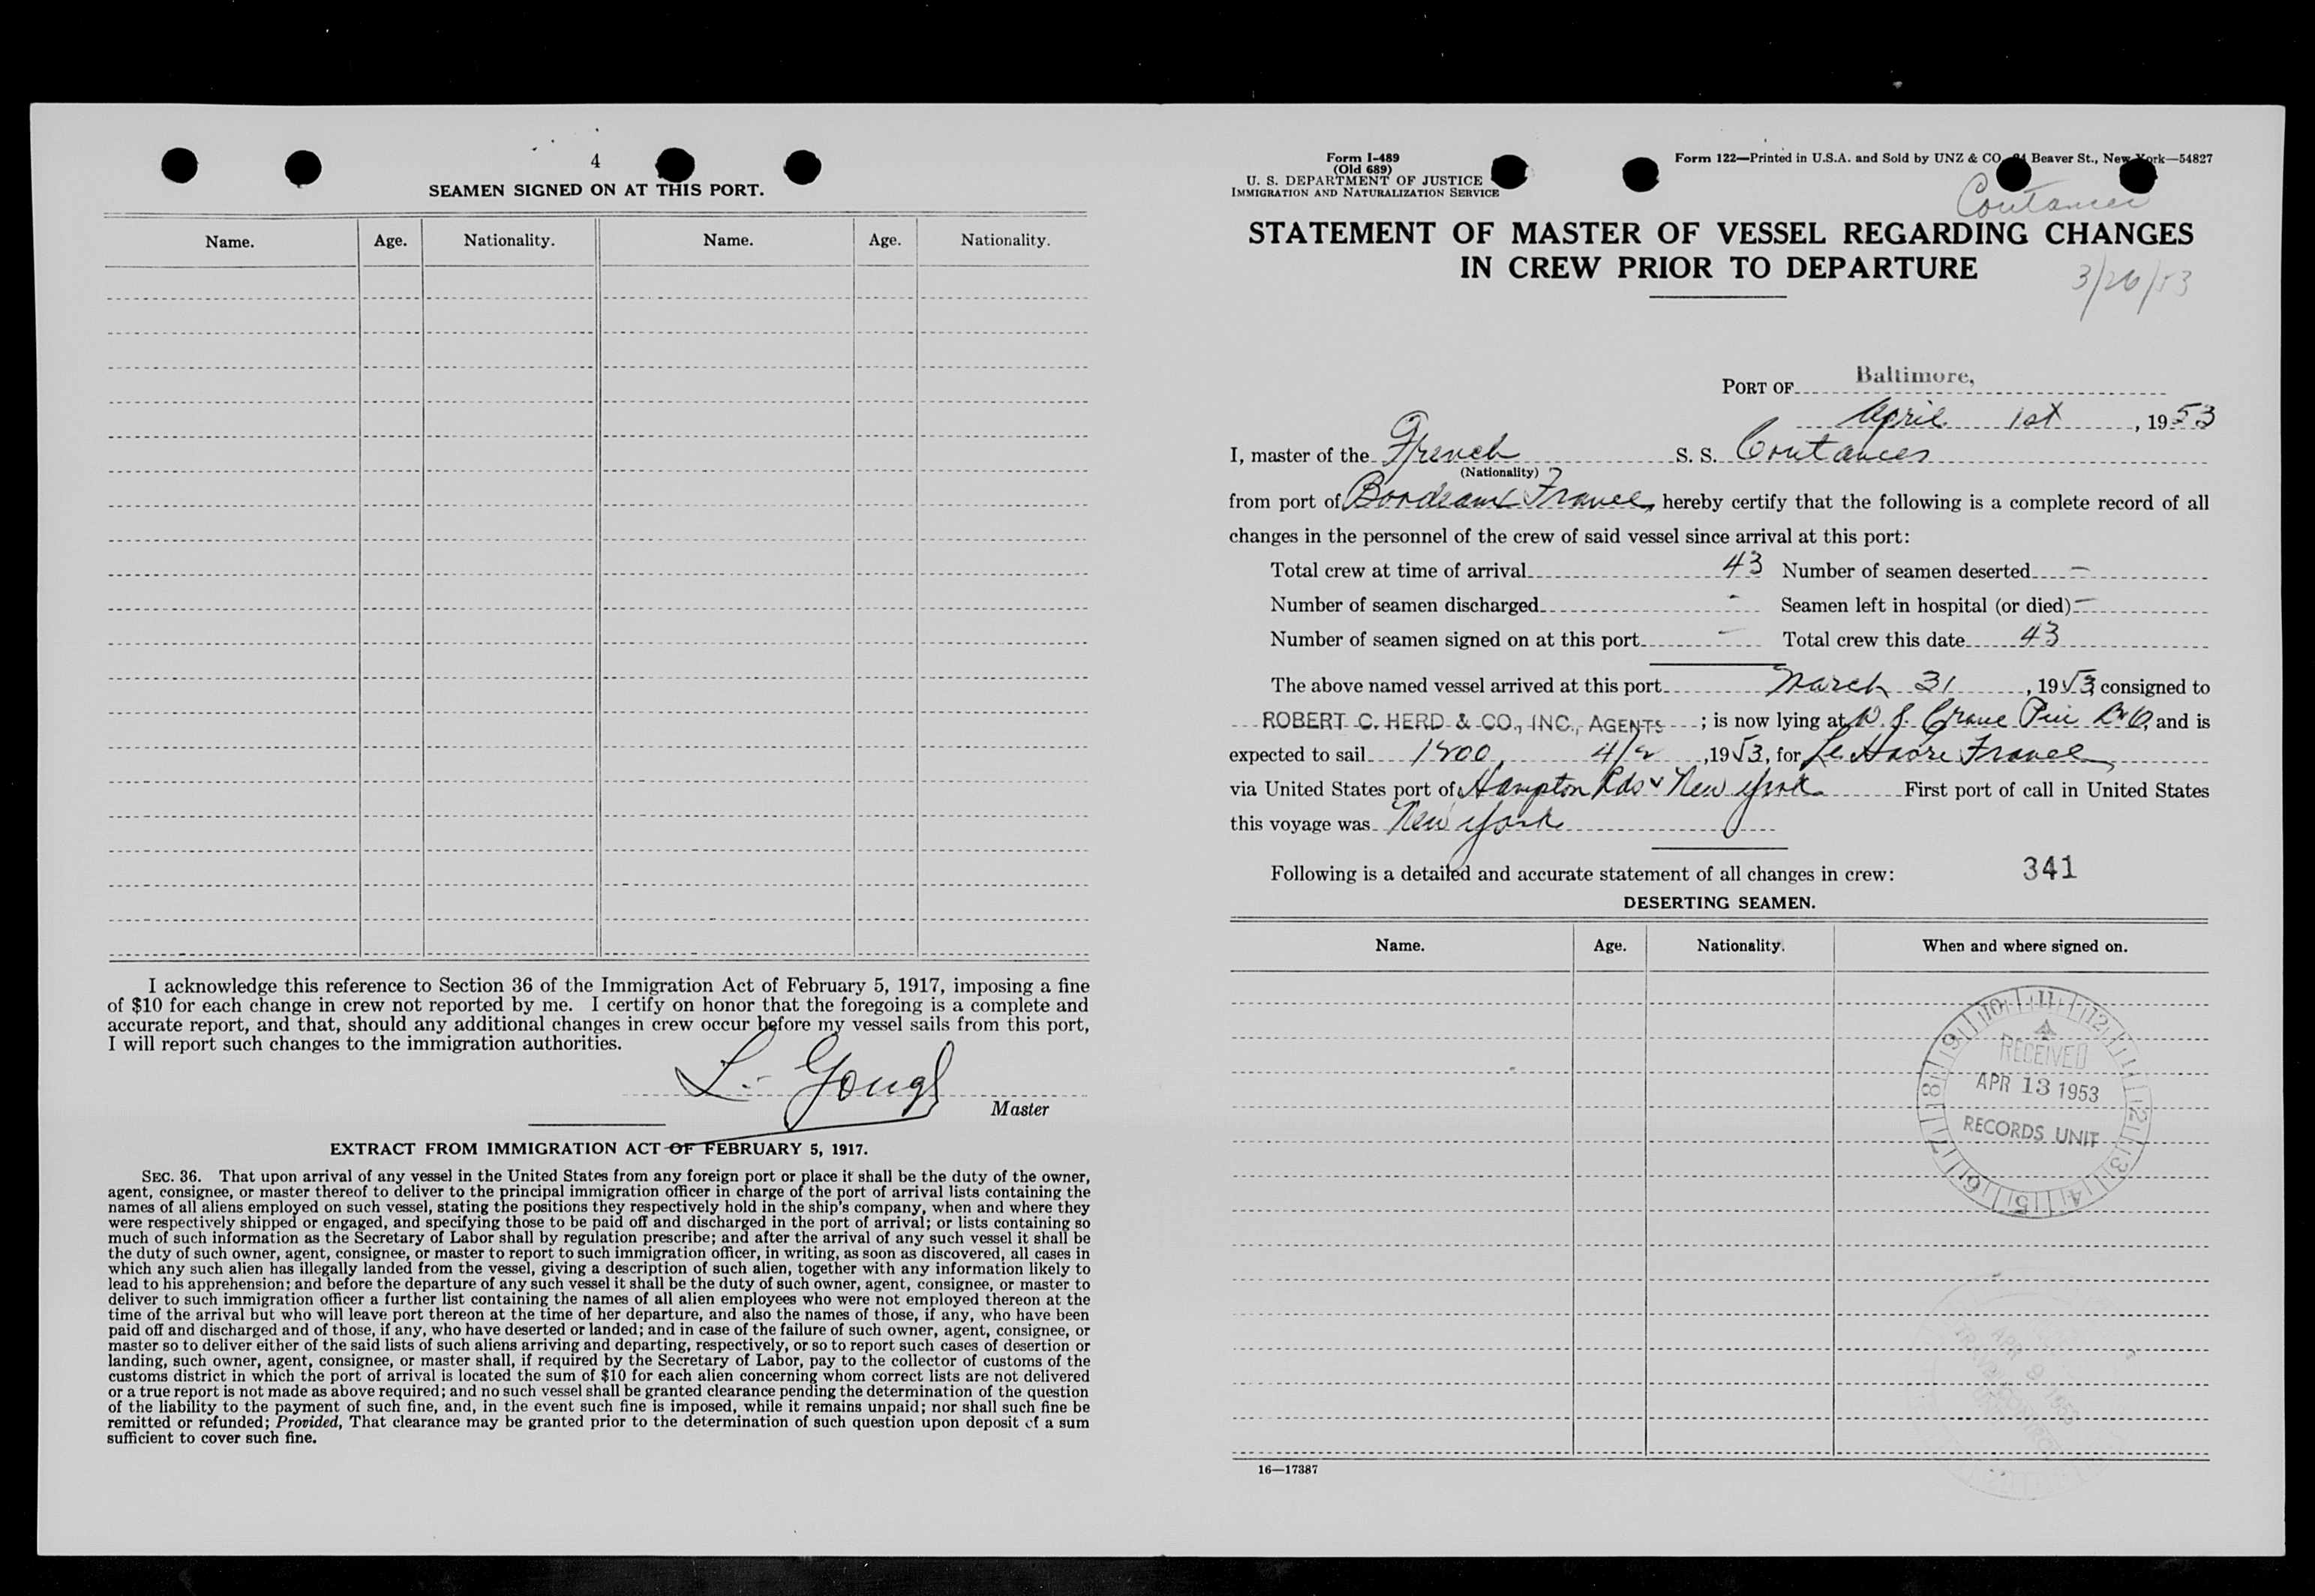 4
SEAMEN SIGNED ON AT THIS PORT.
Name. Age. Nationality. Name. Age. Nationality.
I acknowledge this reference to Section 36 of the Immigration Act of February 5, 1917, imposing a fine
of $10 for each change in crew not reported by me. I certify on honor that the foregoing is a complete and
accurate report, and that, should any additional changes in crew occur before my vessel sails from this port,
I will report such changes to the immigration authorities.
L.
Master
EXTRACT FROM IMMIGRATION ACT OF FEBRUARY 5, 1917.
SEC. 36. That upon arrival of any vessel in the United States from any foreign port or place it shall be the duty of the owner,
agent, consignee, or master thereof to deliver to the principal immigration officer in charge of the port of arrival lists containing the
names of all aliens employed on such vessel, stating the positions they respectively hold in the ship's company, when and where they
were respectively shipped or engaged, and specifying those to be paid off and discharged in the port of arrival; or lists containing so
much of such information as the Secretary of Labor shall by regulation prescribe; and after the arrival of any such vessel it shall be
the duty of such owner, agent, consignee, or master to report to such immigration officer, in writing, as soon as discovered, all cases in
which any such alien has illegally landed from the vessel, giving a description of such alien, together with any information likely to
lead to his apprehension; and before the departure of any such vessel it shall be the duty of such owner, agent, consignee, or master to
deliver to such immigration officer a further list containing the names of all alien employees who were not employed thereon at the
time of the arrival but who will leave port thereon at the time of her departure, and also the names of those, if any, who have been
paid off and discharged and of those, if any, who have deserted or landed; and in case of the failure of such owner, agent, consignee, or
master so to deliver either of the said lists of such aliens arriving and departing, respectively, or so to report such cases of desertion or
landing, such owner, agent, consignee, or master shall, if required by the Secretary of Labor, pay to the collector of customs of the
customs district in which the port of arrival is located the sum of $10 for each alien concerning whom correct lists are not delivered
or a true report is not made as above required; and no such vessel shall be granted clearance pending the determination of the question
of the liability to the payment of such fine, and, in the event such fine is imposed, while it remains unpaid; nor shall such fine be
remitted or refunded; Provided, That clearance may be granted prior to the determination of such question upon deposit of a sum
sufficient to cover such fine.
Form I-489
(Old 689)
U. S. DEPARTMENT OF JUSTICE
IMMIGRATION AND NATURALIZATION SERVICE
Form 122—Printed in U.S.A. and Sold by UNZ & CO. Beaver St., New York—54827
Coutances
STATEMENT OF MASTER OF VESSEL REGARDING CHANGES
IN CREW PRIOR TO DEPARTURE
3/26/53
PORT OF Baltimore,
April 1st, 1953
I, master of the French S. S. Coutances
(Nationality)
from port of Bordeaux France, hereby certify that the following is a complete record of all
changes in the personnel of the crew of said vessel since arrival at this port:
Total crew at time of arrival 43 Number of seamen deserted —
Number of seamen discharged - Seamen left in hospital (or died) —
Number of seamen signed on at this port — Total crew this date 43
The above named vessel arrived at this port March 31, 1953, consigned to
ROBERT C. HERD & CO., INC., AGENTS; is now lying at Crane Pier B&O, and is
expected to sail 1800 4/2, 1953, for Le Havre France
via United States port of Hampton Rds & New York First port of call in United States
this voyage was New York
Following is a detailed and accurate statement of all changes in crew: 341
DESERTING SEAMEN.
Name. Age. Nationality. When and where signed on.
10 11 12 1 2 3 4 5 6 7 8 9
RECEIVED
APR 13 1953
RECORDS UNIT
APR 9 1953
16—17387